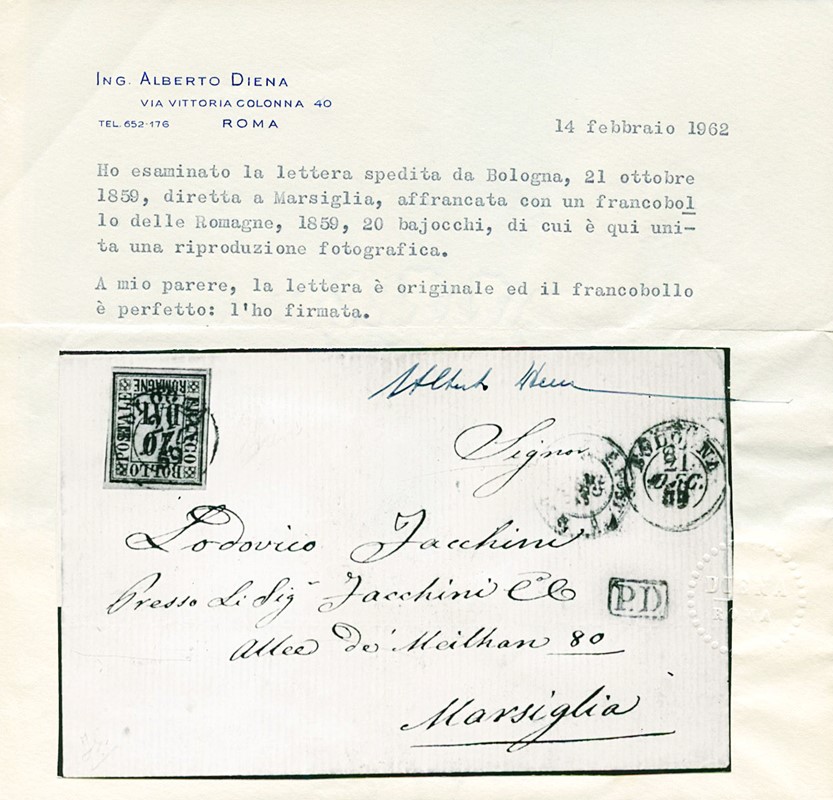 ING. ALBERTO DIENA
VIA VITTORIA COLONNA 40
TEL. 652-176 ROMA
14 febbraio 1962
Ho esaminato la lettera spedita da Bologna, 21 ottobre
1859, diretta a Marsiglia, affrancata con un francobol
lo delle Romagne, 1859, 20 bajocchi, di cui è qui uni-
ta una riproduzione fotografica.
A mio parere, la lettera è originale ed il francobollo
è perfetto: l'ho firmata.
FRANCO
BOLLO
POSTALE
ROMAGNE
BAJ
20
Signor
BOLOGNA
21
59
Lodovico Jacchini
Presso Li Sigr Jacchini C
P.D
DIENA
ROMA
Allee de Meilhan 80
Marsiglia